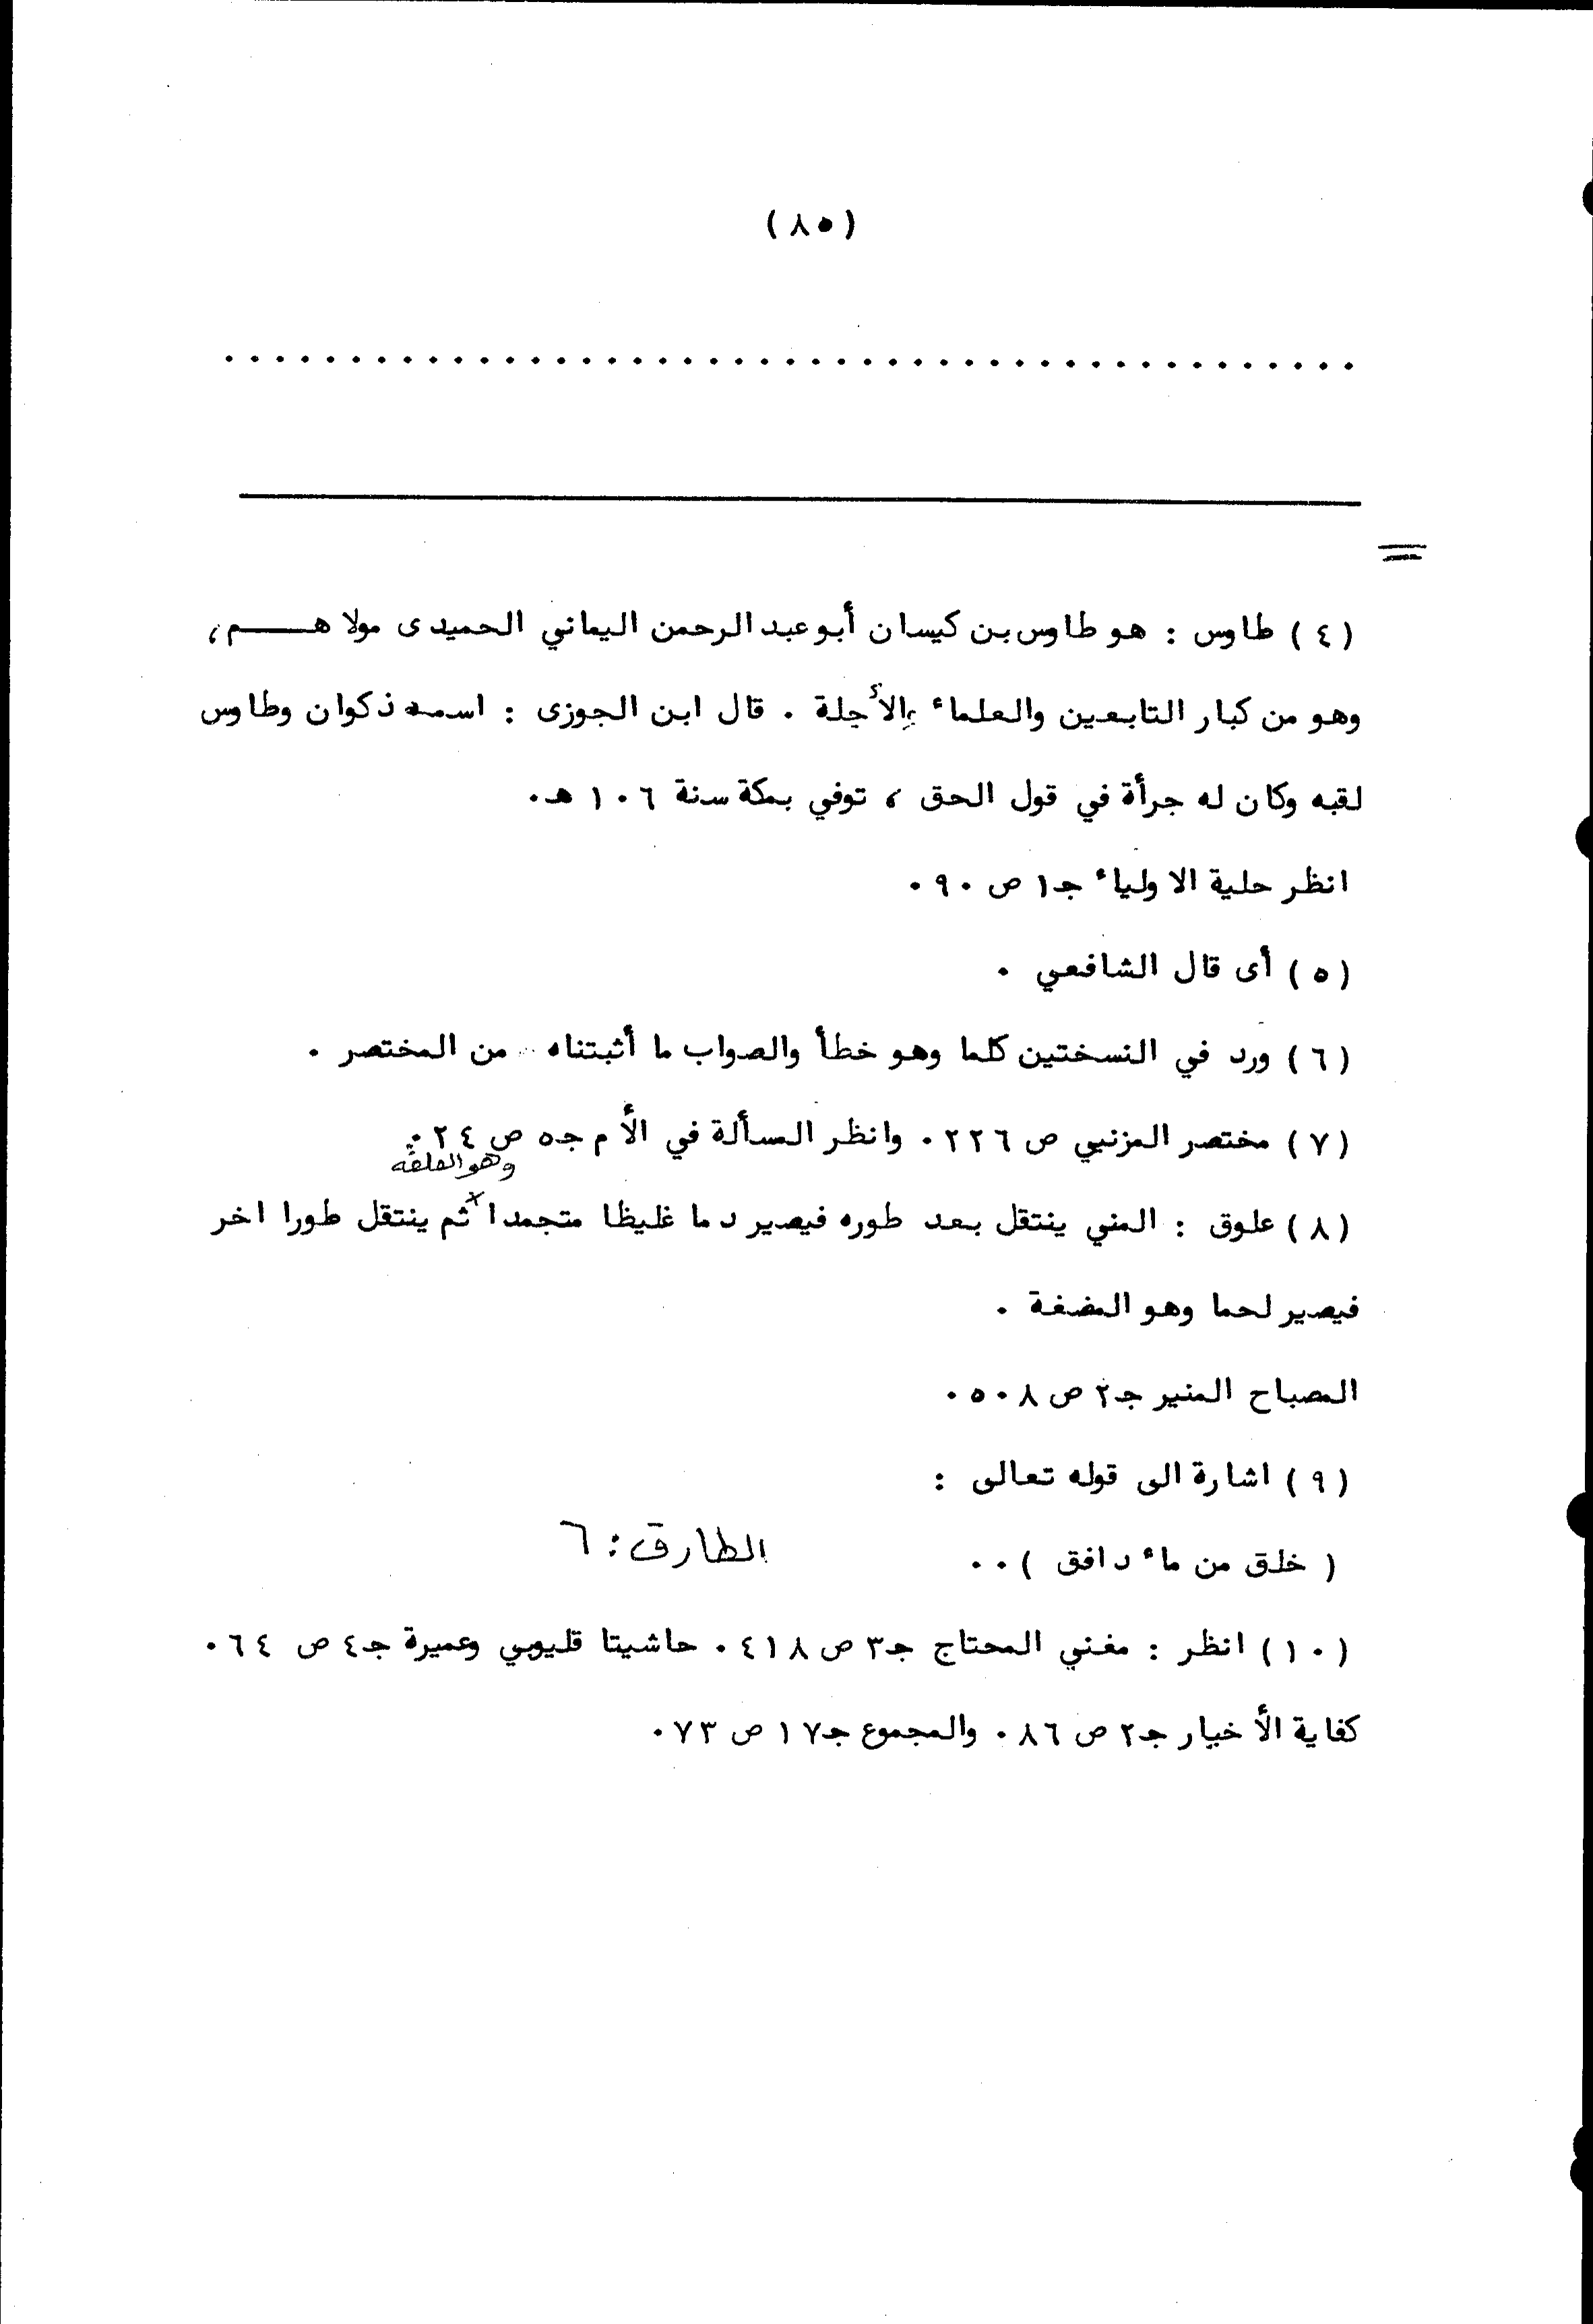 (٨٥)
. . . . . . . . . . . . . . . . . . . . . . . . . . . . . . . . . . . . . . . . . . . . .
=
(٤) طاوس : هو طاوس بن كيسان أبو عبد الرحمن اليماني الحميدى مولاهـــم،
وهو من كبار التابعين والعلماء والأجلة . قال ابن الجوزى : اسمه ذكوان وطاوس
لقبه وكان له جرأة في قول الحق ، توفي بمكة سنة ١٠٦ هـ.
انظر حلية الاولياء جـ١ ص ٩٠.
(٥) أى قال الشافعي .
(٦) ورد في النسختين كلما وهو خطأ والصواب ما أثبتناه من المختصر .
(٧) مختصر المزني ص ٢٢٦. وانظر المسألة في الأم جـ٥ ص ٢٤.
وهو العلقه
(٨) علوق : المني ينتقل بعد طوره فيصير دما غليظا متجمدا ثم ينتقل طورا اخر
فيصير لحما وهو المضغة .
المصباح المنير جـ٢ ص ٥٠٨.
(٩) اشارة الى قوله تعالى :
( خلق من ماء دافق ) . . الطارق : ٦
(١٠) انظر : مغني المحتاج جـ٣ ص ٤١٨. حاشيتا قليوبي وعميرة جـ٤ ص ٦٤.
كفاية الأخيار جـ٢ ص ٨٦. والمجموع جـ١٧ ص ٧٣.